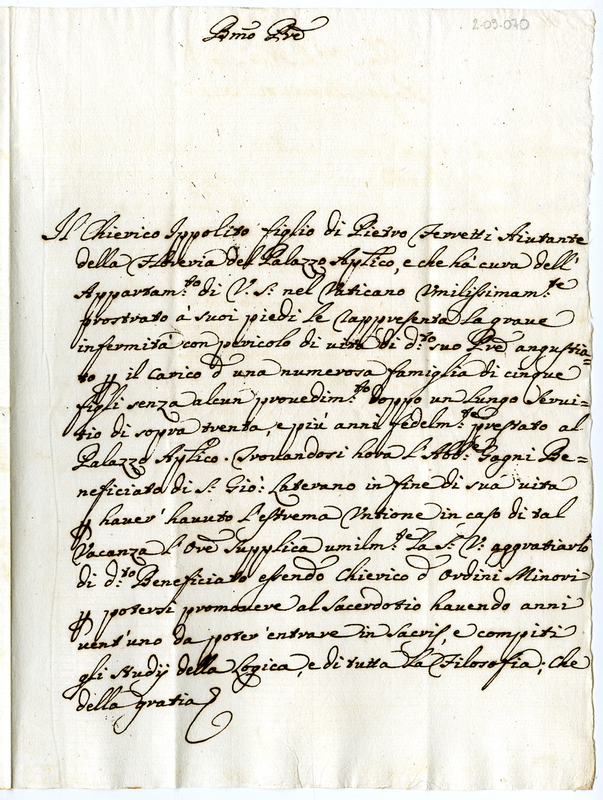 2-09-070
Bmo Pre
Il Chierico Ippolito figlio di Pietro Ferretti Aiutante
della Floreria del Palazzo Aplico, e che hà cura dell'
Appartam.to di V. S.: nel Vaticano Vmilissimam.te
prostrato à suoi piedi le rappresenta la graue
infermità con pericolo di uita di d.to suo Pre angustia=
to p il carico d' una numerosa famiglia di cinque
figli senza alcun prouedim.to doppo un lungo Serui=
tio di sopra trenta, e più anni fedelm.te prestato al
Palazzo Aplico. Trouandosi hora l'Abb.e Gagni Be=
neficiato di S. Gio: Laterano in fine di sua uita
p hauer' hauuto l'estrema Vntione in caso di tal
Vacanza l'Ore Supplica umilm.te La S. V: aggratiarlo
di d.to Beneficiato essendo Chierico d' Ordini Minori
p potersi promouere al Sacerdotio hauendo anni
uent'uno da poter' entrare in Sacris, e compiti
gli studij della Logica, e di tutta La Filosofia; Che
della gratia